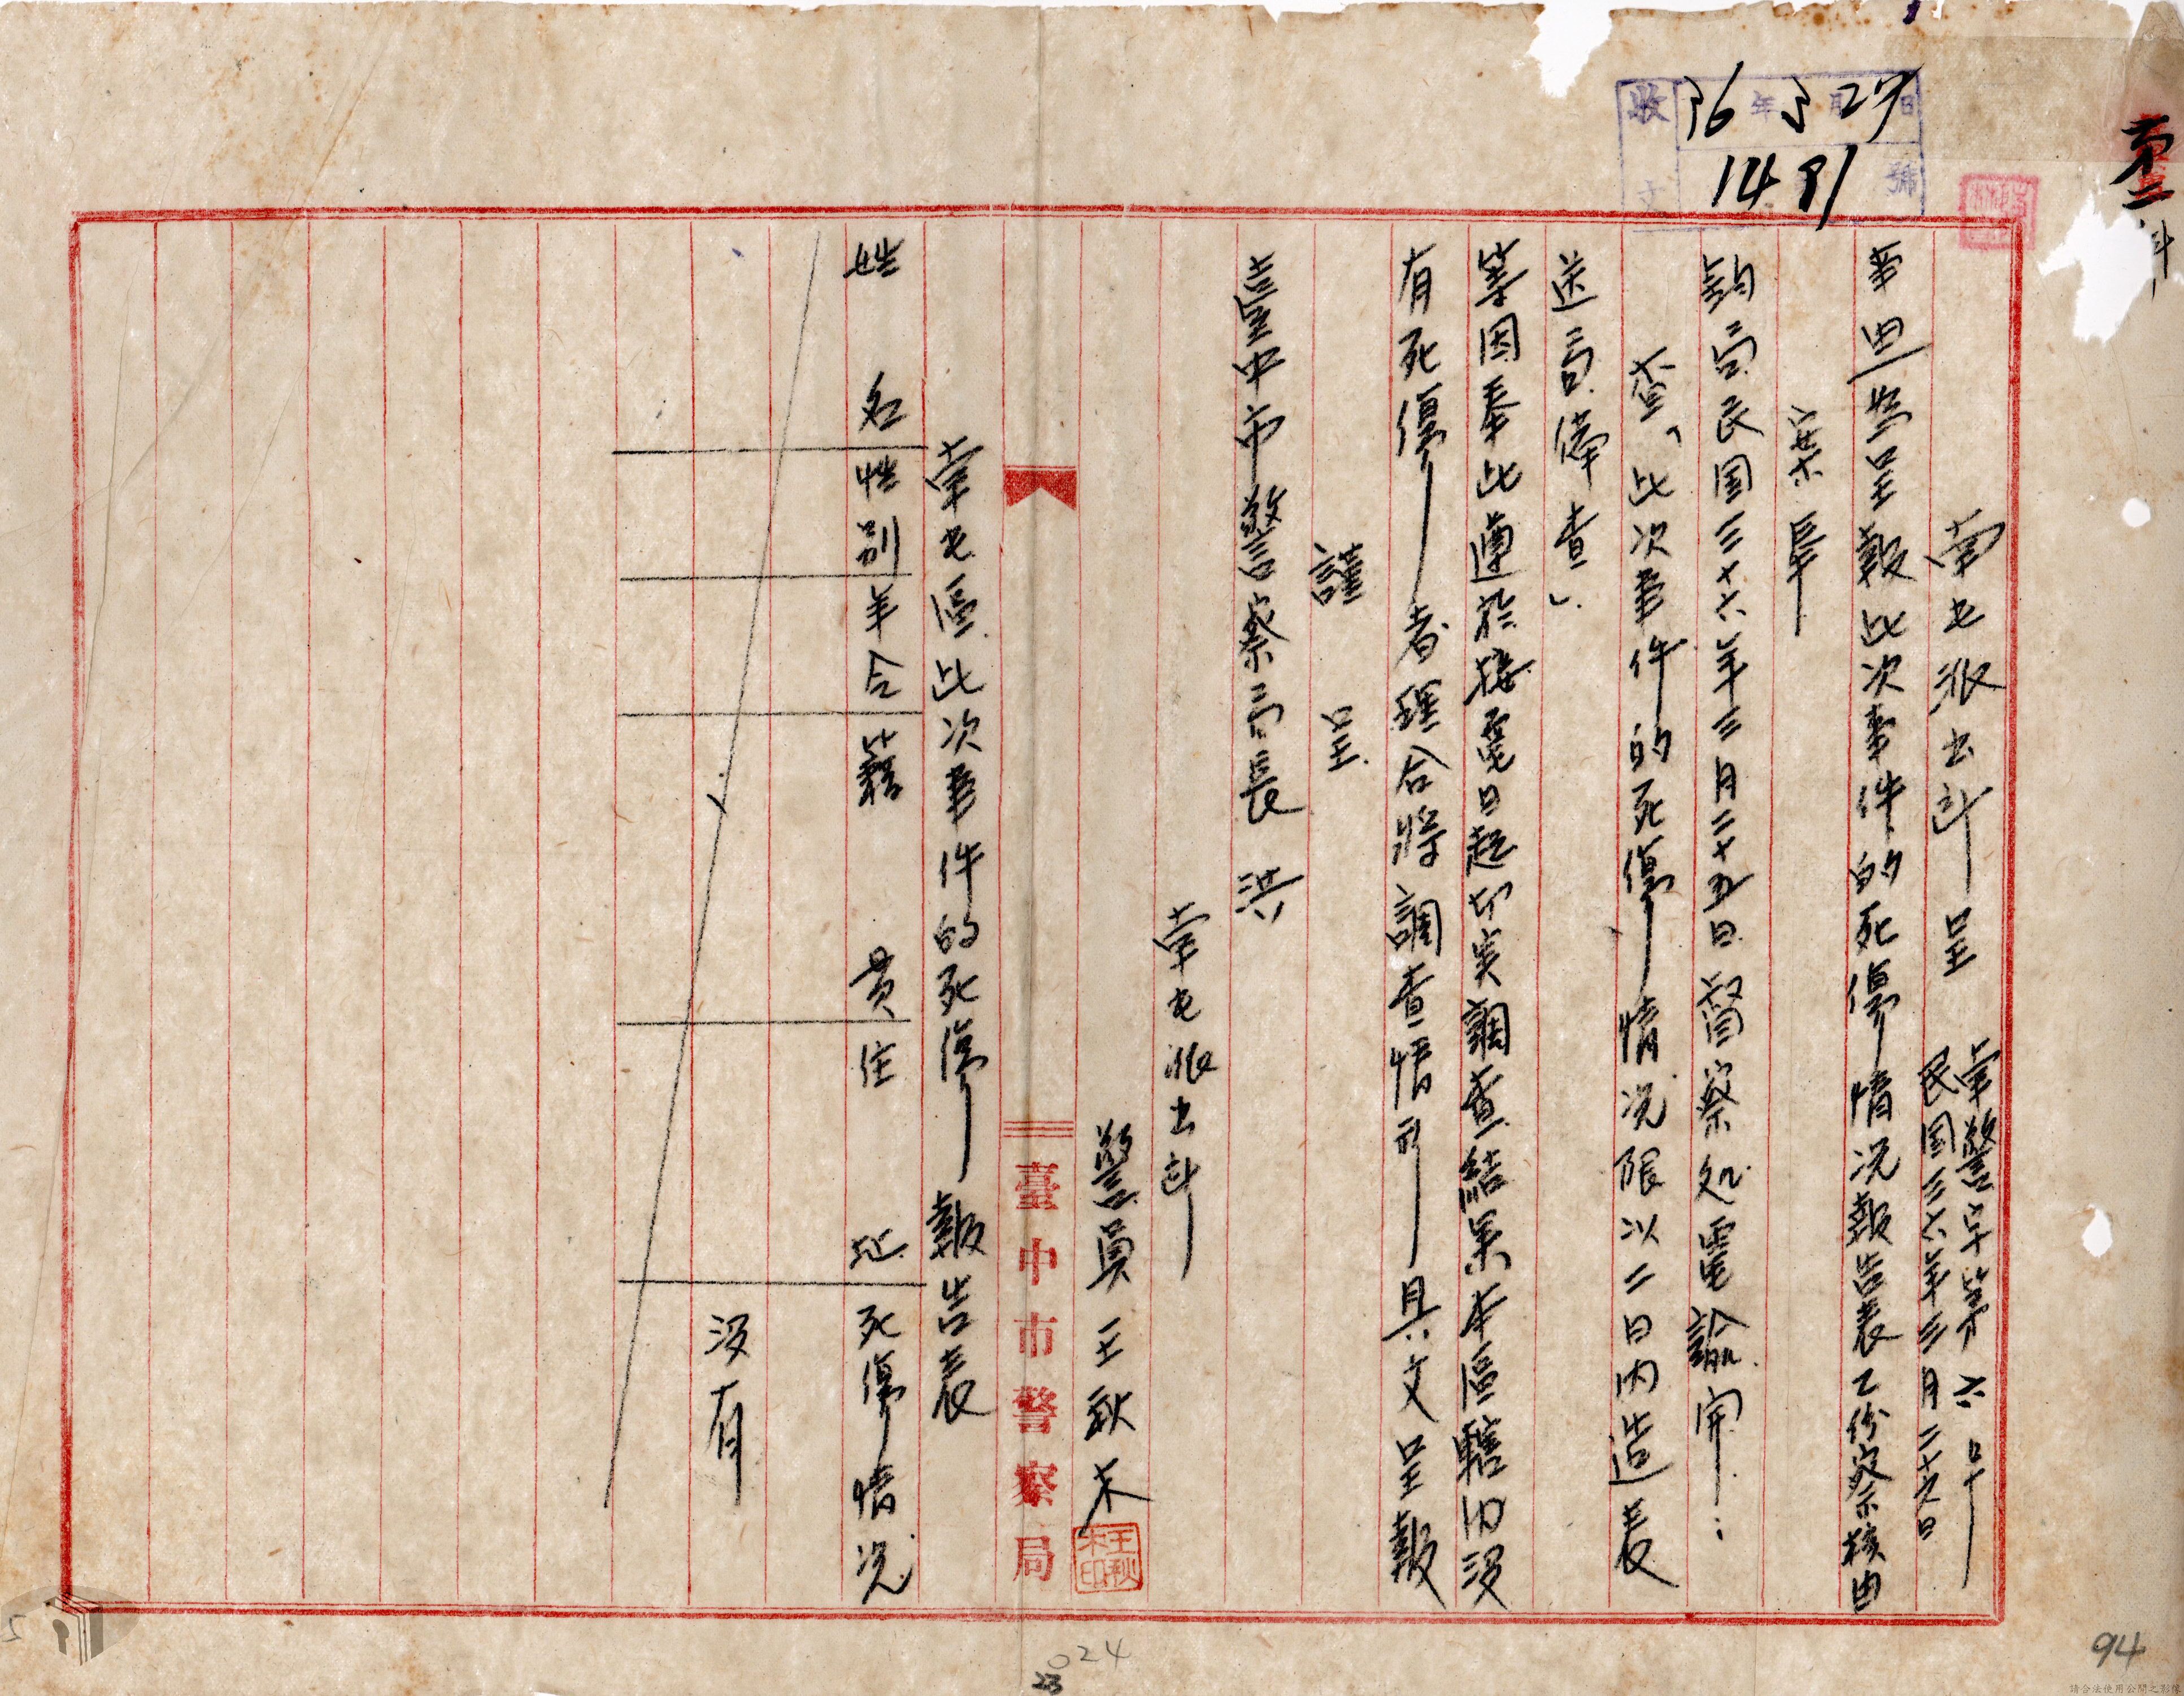 收 36年3月27日
文 1481號
第二科
南屯派出所 呈 南警字第六号
民国三六年三月二十六日
事由 為呈報此次事件的死傷情况報告表乙份察核由
案奉
鈞局民国三十六年三月二十五日督察处電諭開：
查「此次事件的死傷情况限以二日内造表
送局俾查」
等因奉此遵於接電日起切实調查結果本區轄内没
有死傷者理合將調查情形具文呈報
謹 呈
臺中市警察局長 洪
南屯派出所
警員 王秋木
王秋木印
臺中市警察局
南屯區此次事件的死傷報告表
姓名 性别 年令 籍貫 住址 死傷情况
没有
024
23
94
5
請合法使用公開之影像